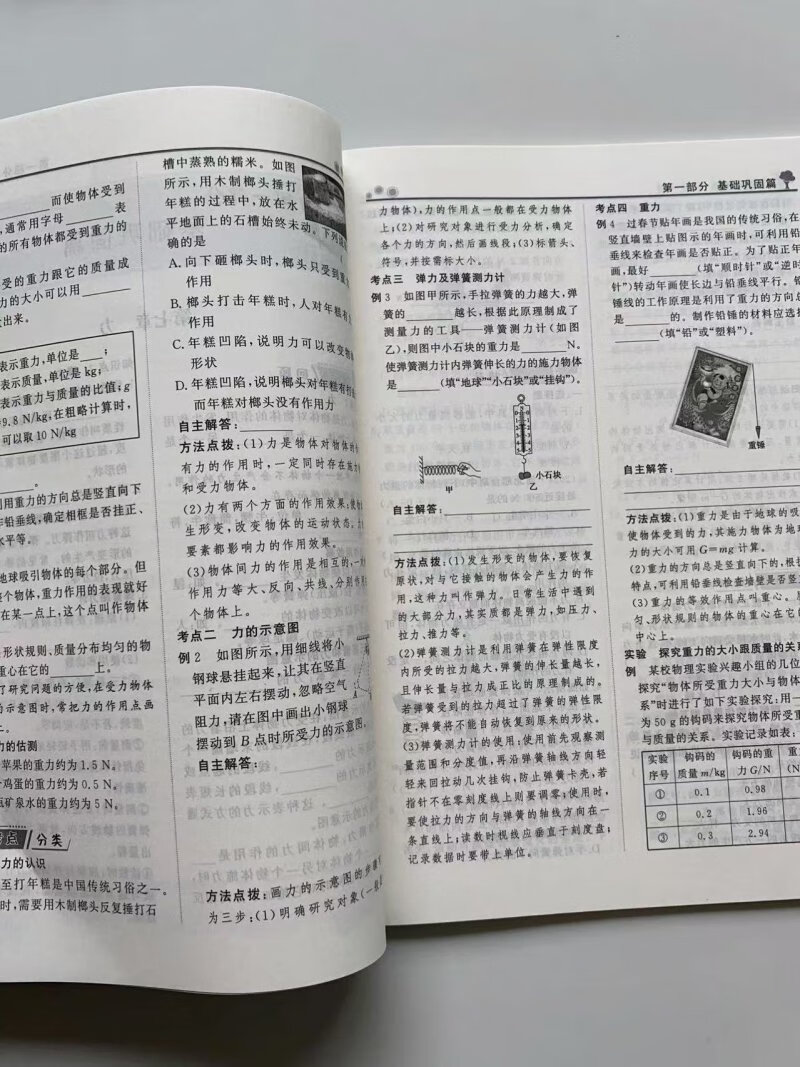 而使物体受到
通常用字母 表
的所有物体都受到重力的
受的重力跟它的质量成
力的大小可以用
出来。
表示重力,单位是 ;
表示质量,单位是 kg;
表示重力与质量的比值;g
9.8 N/kg;在粗略计算时,
可以取 10 N/kg
。
利用重力的方向总是竖直向下
作铅垂线,确定相框是否挂正、
水平等。
地球吸引物体的每个部分。但
整个物体,重力作用的表现就好
在某一点上,这个点叫作物体
形状规则、质量分布均匀的物
重心在它的 上。
了研究问题的方便,在受力物体
的示意图时,常把力的作用点画
上。
力的估测
苹果的重力约为 1.5 N。
个鸡蛋的重力约为 0.5 N。
瓶矿泉水的重力约为 5 N。
考点 分类
力的认识
至打年糕是中国传统习俗之一。
时,需要用木制榔头反复捶打石
槽中蒸熟的糯米。如图
所示,用木制榔头捶打
年糕的过程中,放在水
平地面上的石槽始终未动。下列
确的是 (
A. 向下砸榔头时,榔头只受到重
作用
B. 榔头打击年糕时,人对年糕有力
作用
C. 年糕凹陷,说明力可以改变物体
形状
D. 年糕凹陷,说明榔头对年糕有打击
而年糕对榔头没有作用力
自主解答:
方法点拨:(1)力是物体对物体的作
有力的作用时,一定同时存在施力
和受力物体。
(2)力有两个方面的作用效果:使物
生形变,改变物体的运动状态。力
要素都影响力的作用效果。
(3)物体间力的作用是相互的,一对
作用力等大、反向、共线,分别作用
个物体上。
考点二 力的示意图
例 2 如图所示,用细线将小
钢球悬挂起来,让其在竖直
平面内左右摆动,忽略空气
阻力,请在图中画出小钢球
摆动到 B 点时所受力的示意图。
自主解答:
方法点拨:画力的示意图的步骤
为三步:(1)明确研究对象(一般是
第一部分 基础巩固篇
力物体),力的作用点一般都在受力物体
上;(2)对研究对象进行受力分析,确定
各个力的方向,然后画线段;(3)标箭头、
符号,并按需标大小。
考点三 弹力及弹簧测力计
例 3 如图甲所示,手拉弹簧的力越大,弹
簧的 越长,根据此原理制成了
测量力的工具——弹簧测力计(如图
乙),则图中小石块的重力是 N。
使弹簧测力计内弹簧伸长的力的施力物体
是 (填“地球”“小石块”或“挂钩”)。
甲
小石块
乙
自主解答:
方法点拨:(1)发生形变的物体,要恢复
原状,对与它接触的物体会产生力的作
用,这种力叫作弹力。日常生活中遇到
的大部分力,其实质都是弹力,如压力、
拉力、推力等。
(2)弹簧测力计是利用弹簧在弹性限度
内所受的拉力越大,弹簧的伸长量越长,
且伸长量与拉力成正比的原理制成的。
若弹簧受到的拉力超过了弹簧的弹性限
度,弹簧将不能自动恢复到原来的形状。
(3)弹簧测力计的使用:使用前先观察测
量范围和分度值,再沿弹簧轴线方向轻
轻来回拉动几次挂钩,防止弹簧卡壳;若
指针不在零刻度线上则要调零;使用时,
要使拉力的方向与弹簧的轴线方向在一
条直线上;读数时视线应垂直于刻度盘;
记录数据时要带上单位。
考点四 重力
例 4 过春节贴年画是我国的传统习俗,在
竖直墙壁上贴图示的年画时,可利用铅
垂线来检查年画是否贴正。为了贴正年
画,最好 (填“顺时针”或“逆时
针”)转动年画使长边与铅垂线平行。铅
锤线的工作原理是利用了重力的方向总
是 的。制作铅锤的材料应选择
(填“铅”或“塑料”)。
重锤
自主解答:
方法点拨:(1)重力是由于地球的吸
使物体受到的力,其施力物体为地球
力的大小可用 G=mg 计算。
(2)重力的方向总是竖直向下的,根
特点,可利用铅垂线检查墙壁是否竖
(3)重力的等效作用点叫重心。
匀、形状规则的物体的重心在它的
中心上。
实验 探究重力的大小跟质量的关系
例 某校物理实验兴趣小组的几位
探究“物体所受重力大小与物体
系”时进行了如下实验探究:用一
为 50 g 的钩码来探究物体所受重
与质量的关系。实验记录如表:
实验 钩码的 钩码的重 重
序号 质量 m/kg 力 G/N (N
① 0.1 0.98
② 0.2 1.96
③ 0.3 2.94